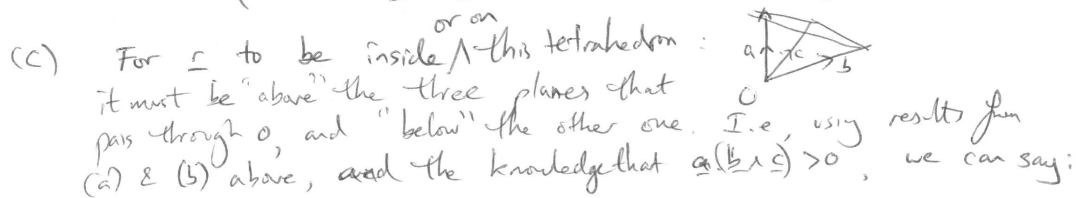 (c) For c to be inside ∧ or on this tetrahedron :
it must be "above" the three planes that
pass through 0, and "below" the other one. I.e, using results from
(a) & (b) above, and the knowledge that a(b∧c) >0, we can say:
a c b
O